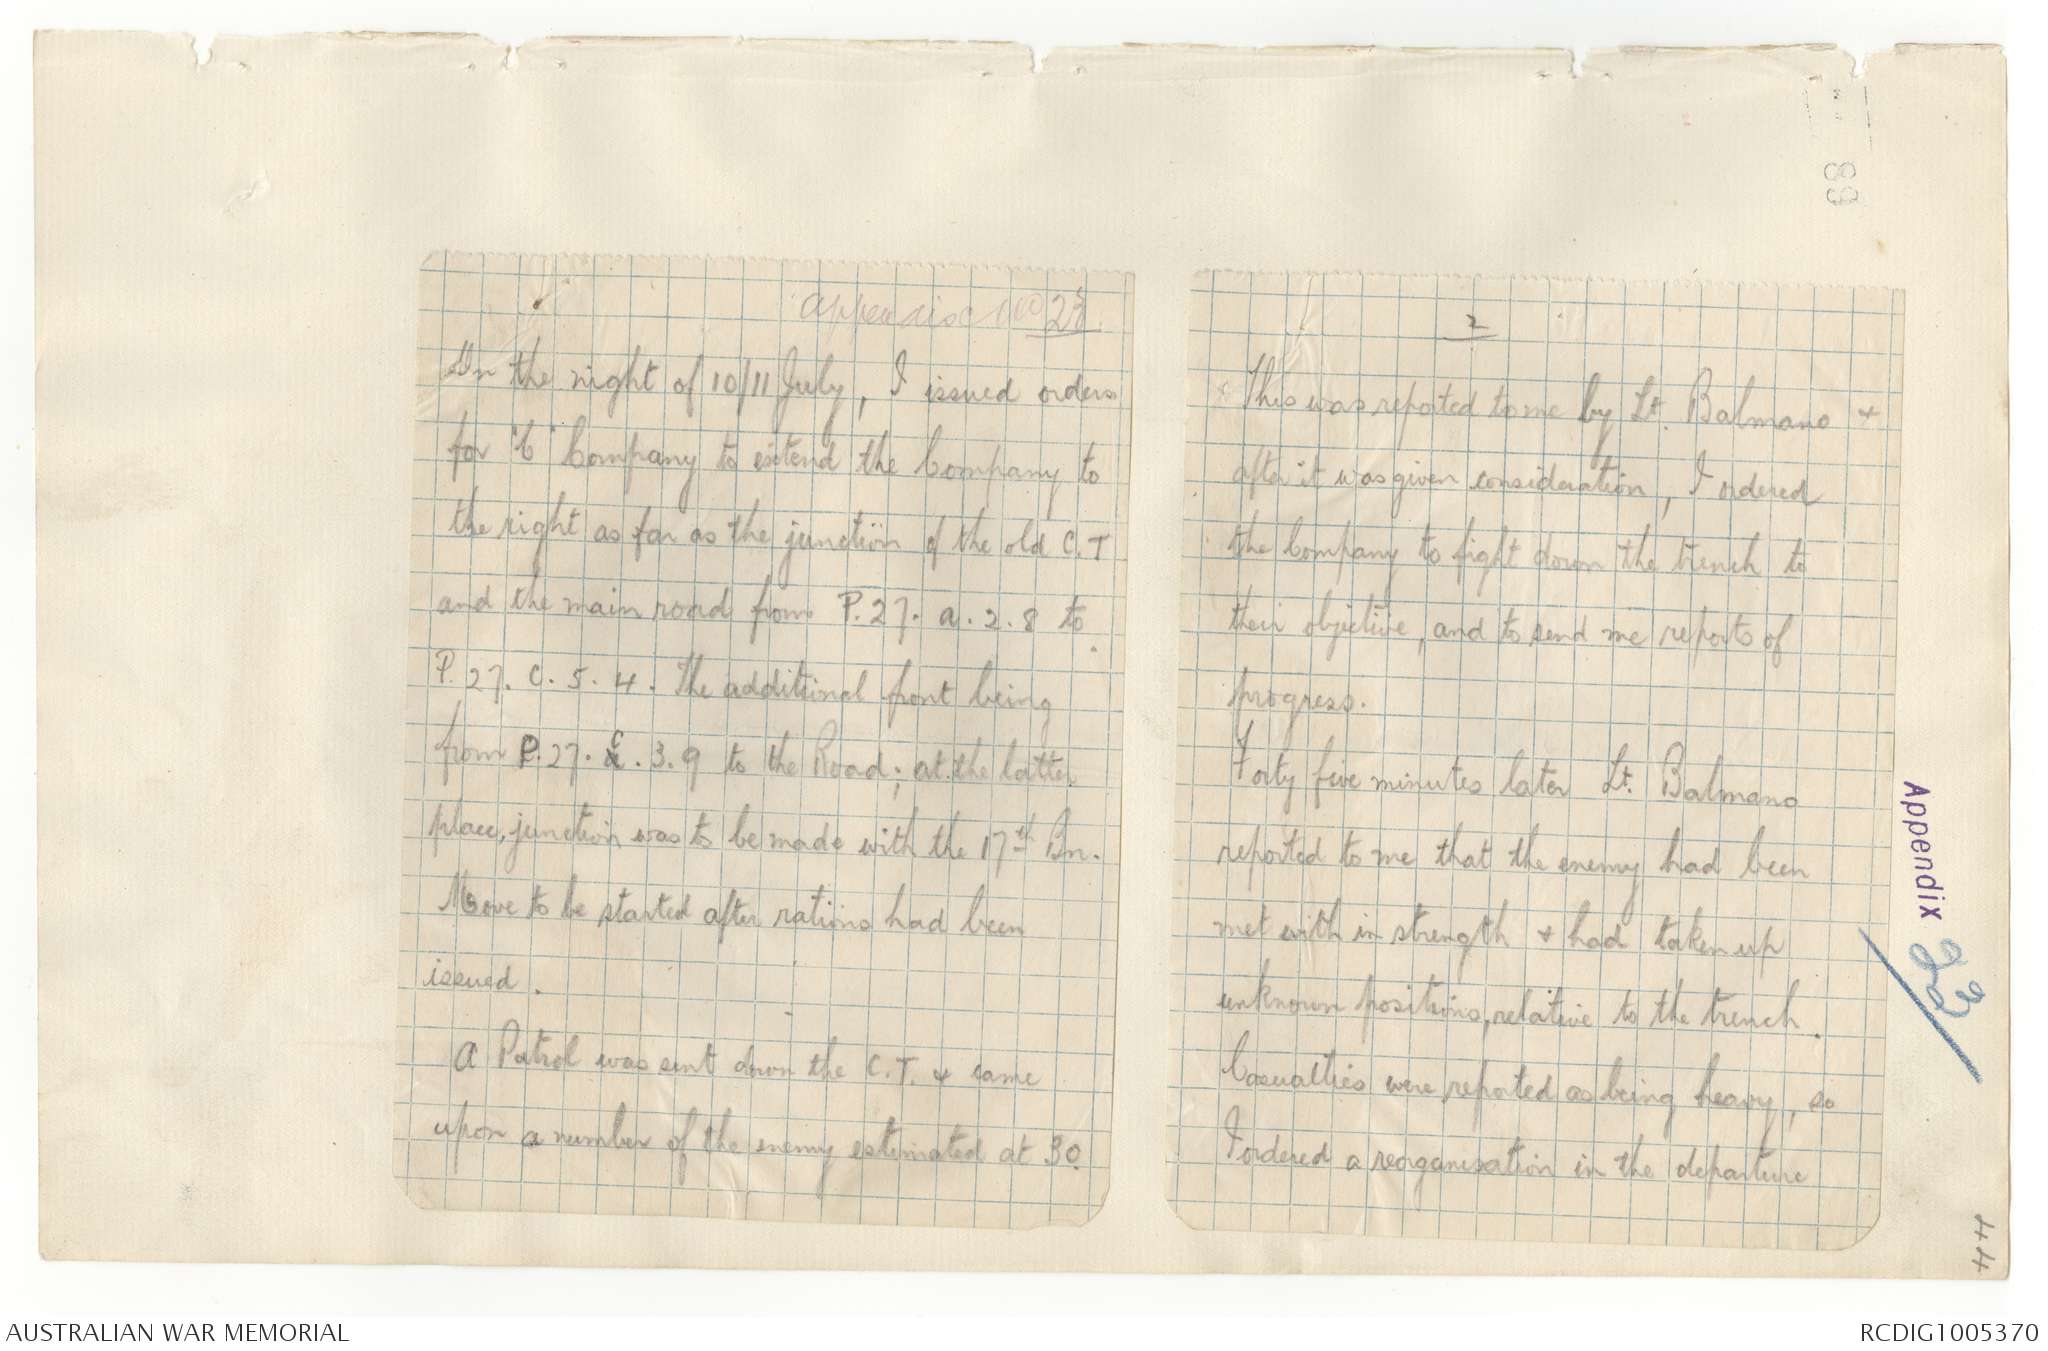 Appendix No 23
On the night of 10/11 July, I issued orders
for "C" Company to extend the Company to
the right as far as the junction of the old C.T
and the main road from P.27. a. 2. 8 to
P. 27. C. 5. 4. The additional front being
from P.27. C. 3. 9 to the Road; at the latter
place, junction was to be made with the 17th Bn.
Move to be started after rations had been
issued.
A Patrol was sent down the C.T. & came
upon a number of the enemy estimated at 30.
2
This was reported to me by Lt. Balmano &
after it was given consideration, I ordered
the Company to fight down the trench to
their objective, and to send me reports of
progress.
Forty five minutes later Lt. Balmano
reported to me that the enemy had been
met with in strength & had taken up
unknown positions, relative to the trench.
Casualties were reported as being heavy, so
I ordered a reorganisation in the departure
68
Appendix 23
44
AUSTRALIAN WAR MEMORIAL
RCDIG1005370